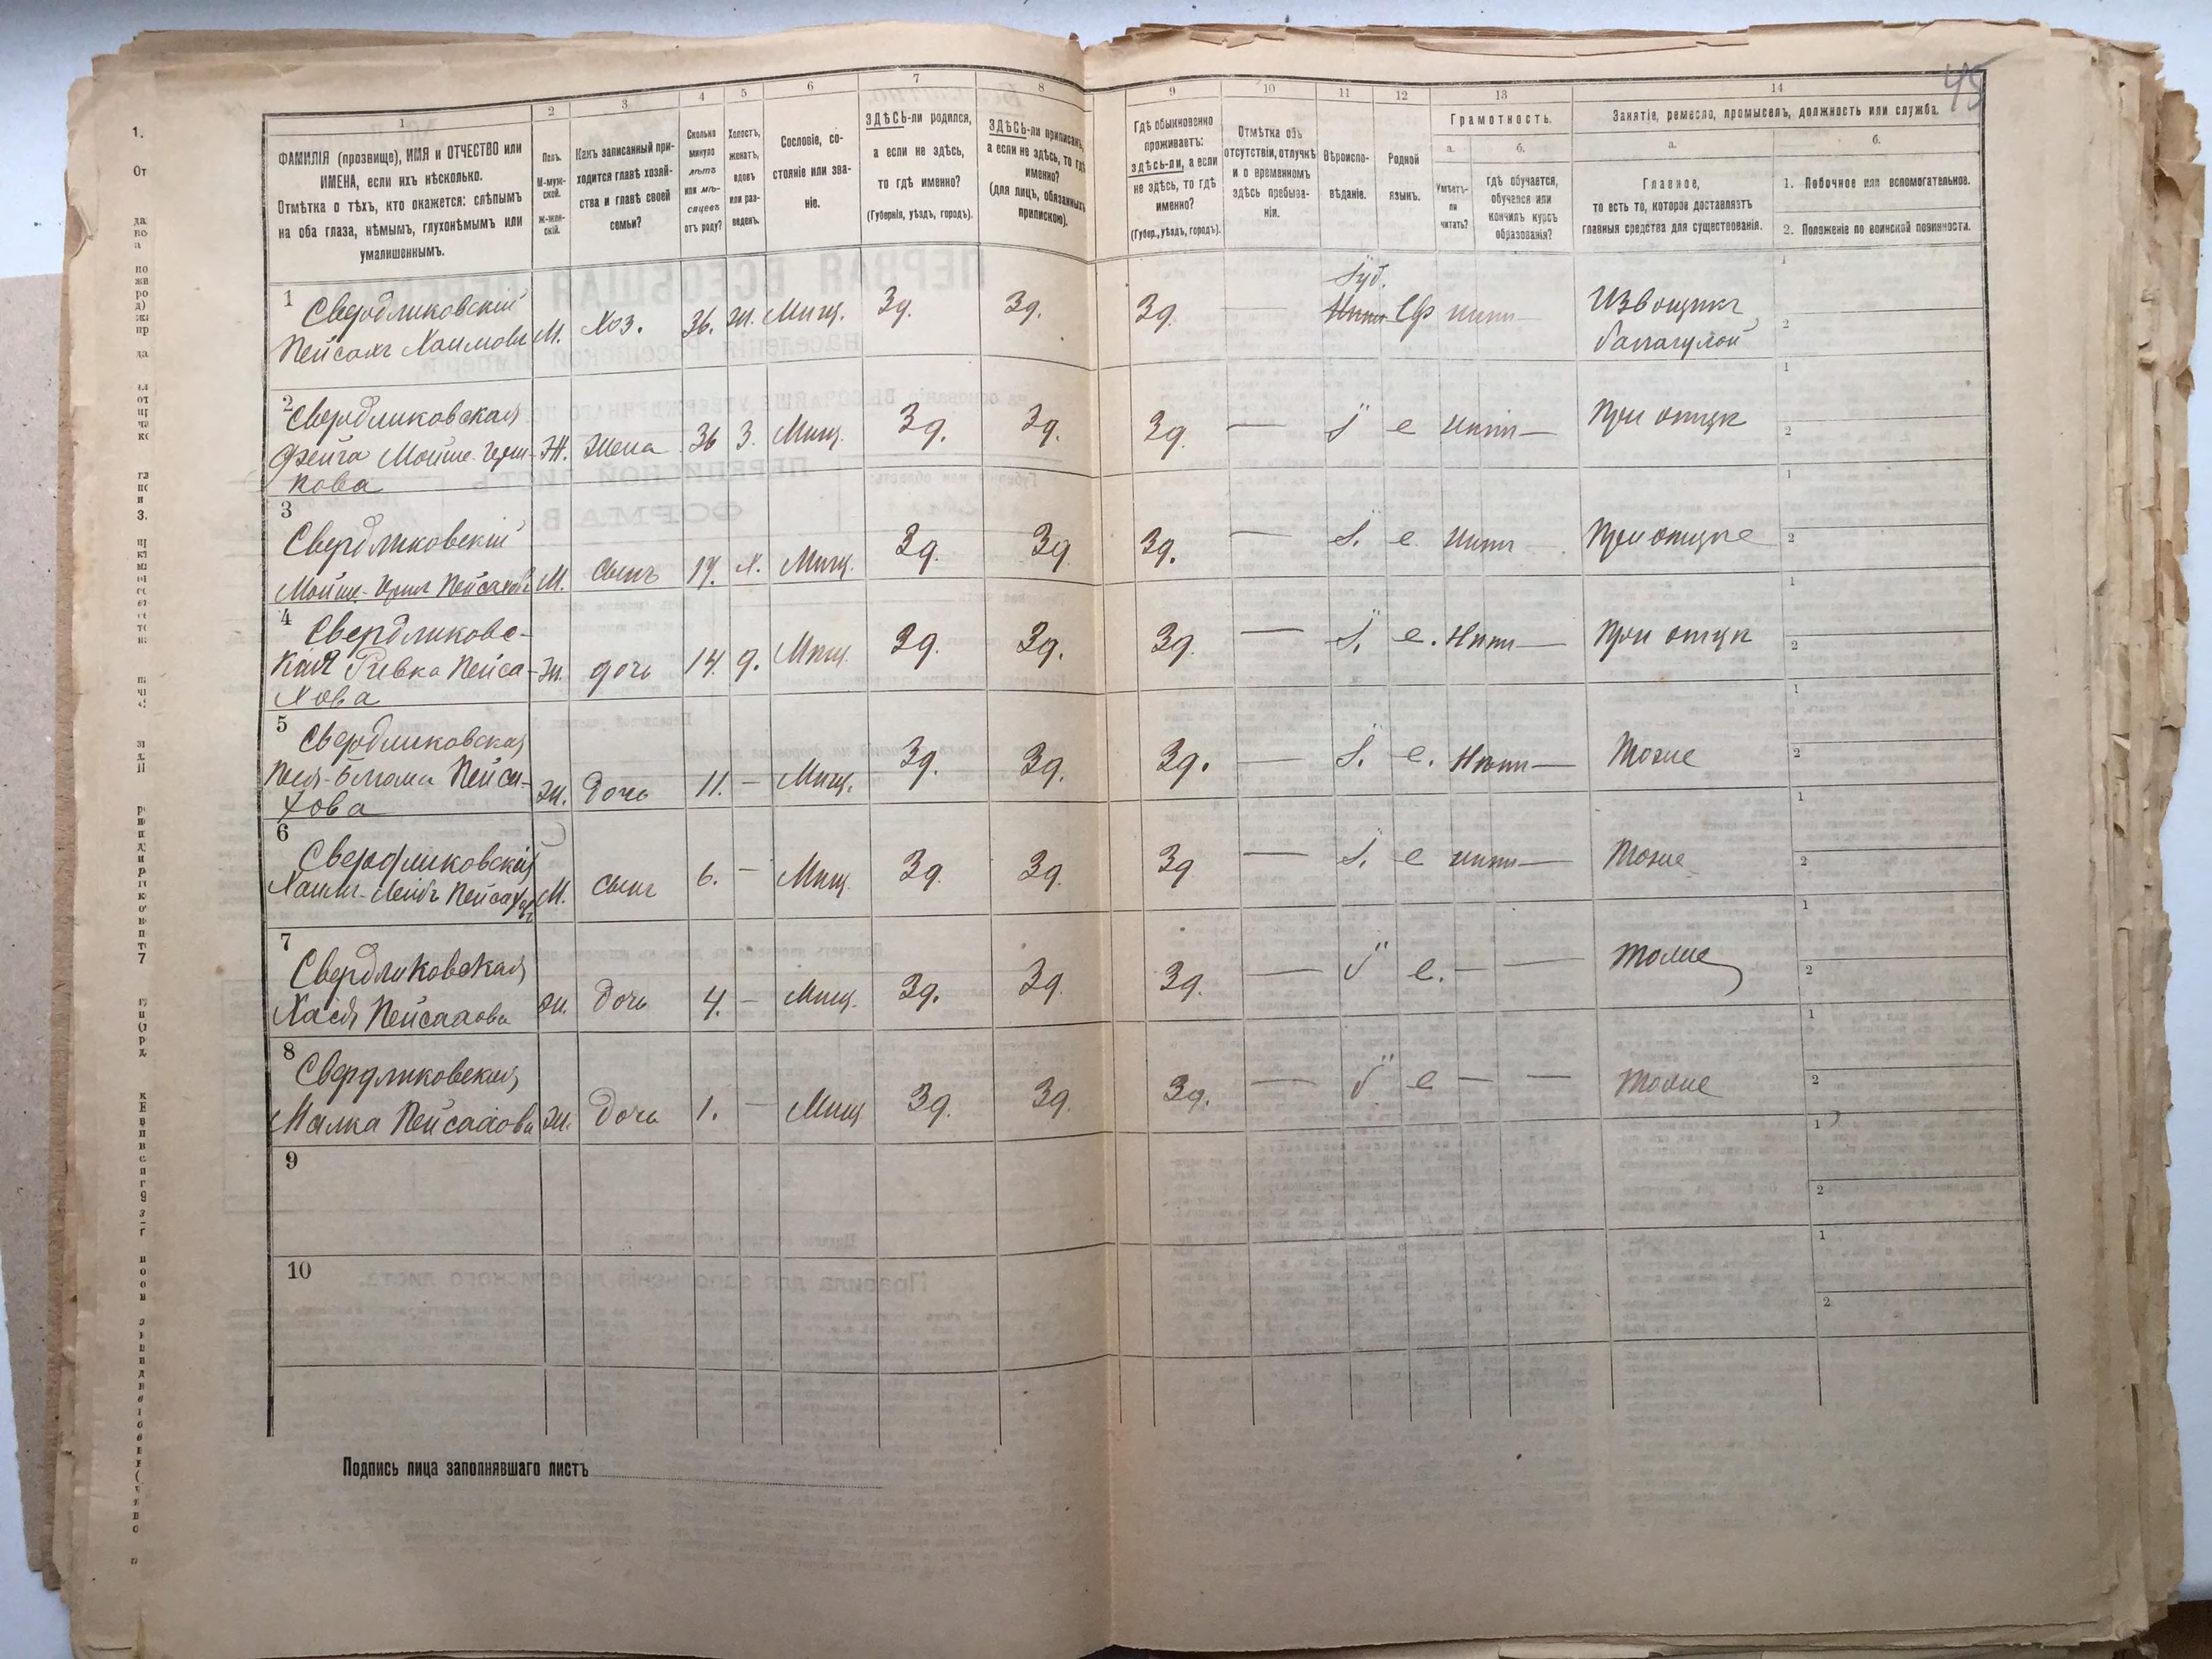 45
1
ФАМИЛІЯ (прозвище), ИМЯ и ОТЧЕСТВО или
ИМЕНА, если ихъ нѣсколько.
Отмѣтка о тѣхъ, кто окажется: слѣпымъ
на оба глаза, нѣмымъ, глухонѣмымъ или
умалишеннымъ.
2
Полъ.
М-муж-
ской.
ж-жен-
скій.
3
Какъ записанный при-
ходится главѣ хозяй-
ства и главѣ своей
семьи?
4
Сколько
минуло
лѣтъ
или мѣ-
сяцевъ
отъ роду?
5
Холостъ,
женатъ,
вдовъ
или раз-
веденъ.
6
Сословіе, со-
стояніе или зва-
ніе.
7
ЗДѢСЬ-ли родился,
а если не здѣсь,
то гдѣ именно?
(Губернія, уѣздъ, городъ).
8
ЗДѢСЬ-ли приписанъ,
а если не здѣсь, то гдѣ
именно?
(для лицъ, обязанныхъ
припискою).
9
Гдѣ обыкновенно
проживаетъ:
здѣсь-ли, а если
не здѣсь, то гдѣ
именно?
(Губер., уѣздъ, городъ).
10
Отмѣтка объ
отсутствіи, отлучкѣ
и о временномъ
здѣсь пребыва-
ніи.
11
Вѣроиспо-
вѣданіе.
12
Родной
языкъ.
13
Грамотность.
а.
Умѣетъ-
ли
читать?
б.
гдѣ обучается,
обучался или
кончилъ курсъ
образованія?
14
Занятіе, ремесло, промыселъ, должность или служба.
а.
Главное,
то есть то, которое доставляетъ
главныя средства для существованія.
б.
1. Побочное или вспомогательное.
2. Положеніе по воинской повинности.
1 Свердликовскій
Пейсахъ Хаимовъ М. Хоз. 36. ж. Мищ. Зд. Зд. Зд. — Іуд. Евр нѣтъ — Извощикъ
балагулой
2 Свердликовская
Фейга Мойше-Герш-
кова Ж. Жена 36 З. Мищ. Зд. Зд. Зд. — І е нѣтъ — При отцѣ
3 Свердликовскій
Мойше- Пейсаховъ М. Сынъ 17. х. Мищ. Зд. Зд Зд. — І. е нѣтъ — При отце
4 Свердликовс-
кая Ривка Пейса-
хова ж. дочь 14. д. Мищ. Зд. Зд. Зд. — І. е. Нѣтъ — При отцѣ
5 Свердликовская
Пейса-
хова ж. Дочь 11. — Мищ. Зд. Зд. Зд. — І. е. Нѣтъ — Тоже
6 Свердликовскій
Хаимъ-Лейбъ Пейсаховъ М. Сынъ 6. — Мищ. Зд. Зд. Зд — І. е нѣтъ — Тоже
7 Свердликовская
Хася Пейсахова ж. Дочь 4. — Мищ. Зд. Зд. Зд. — І е. — — тоже
8 Свердликовская
Малка Пейсахова ж. Дочь 1. — Мищ Зд. Зд. Зд. — І е — — тоже
9
10
Подпись лица заполнявшаго листъ